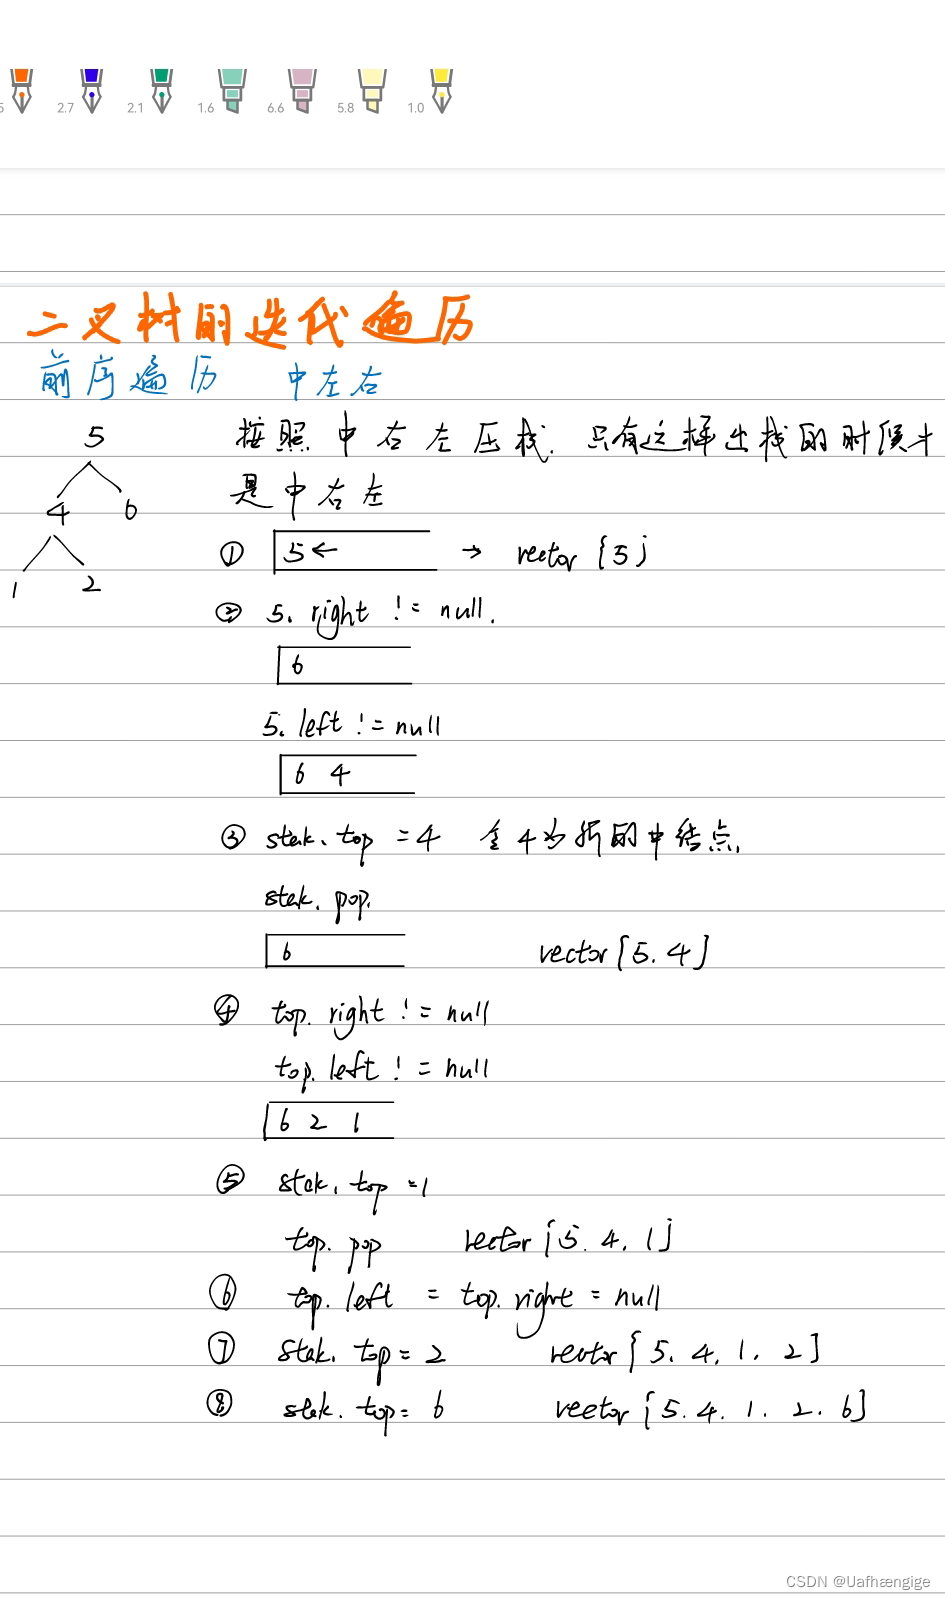 5 2.7 2.1 1.6 6.6 5.8 1.0
二叉树的迭代遍历
前序遍历 中左右
5
4 6
1 2
按照中右左压栈. 只有这样出栈的时候才
是中右左
① 5← → vector {5}
② 5. right != null.
6
5. left != null
6 4
③ stak. top = 4 令4为新的中结点.
stak. pop.
6 vector[5. 4]
④ top. right != null
top. left != null
6 2 1
⑤ stak. top = 1
top. pop vector[5. 4. 1]
⑥ top. left = top. right = null
⑦ stak. top = 2 vector[5. 4. 1. 2]
⑧ stak. top = 6 vector[5. 4. 1. 2. 6]
CSDN @Uafhængige